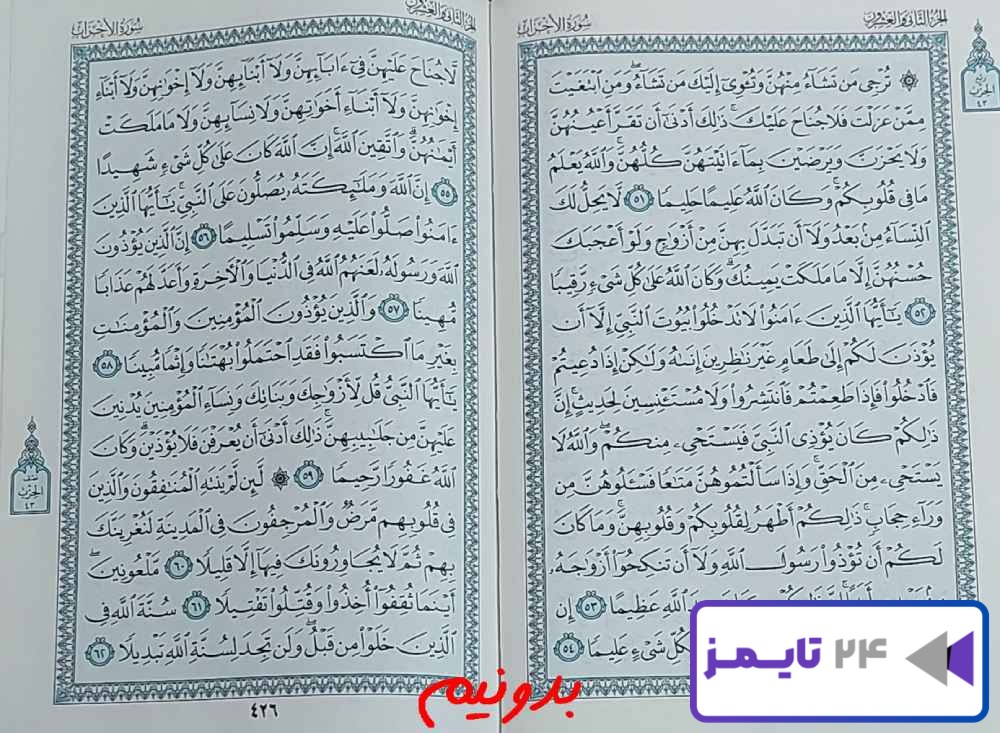 الجزء الثاني والعشرون
سورة الأحزاب
ربع
الحزب
٤٣
۞ تُرْجِى مَن تَشَآءُ مِنْهُنَّ وَتُـْٔوِىٓ إِلَيْكَ مَن تَشَآءُ وَمَنِ ٱبْتَغَيْتَ
مِمَّنْ عَزَلْتَ فَلَا جُنَاحَ عَلَيْكَ ۚ ذَٰلِكَ أَدْنَىٰٓ أَن تَقَرَّ أَعْيُنُهُنَّ
وَلَا يَحْزَنَّ وَيَرْضَيْنَ بِمَآ ءَاتَيْتَهُنَّ كُلُّهُنَّ ۚ وَٱللَّهُ يَعْلَمُ
مَا فِى قُلُوبِكُمْ ۚ وَكَانَ ٱللَّهُ عَلِيمًا حَلِيمًا ٥١ لَّا يَحِلُّ لَكَ
ٱلنِّسَآءُ مِنۢ بَعْدُ وَلَآ أَن تَبَدَّلَ بِهِنَّ مِنْ أَزْوَٰجٍ وَلَوْ أَعْجَبَكَ
حُسْنُهُنَّ إِلَّا مَا مَلَكَتْ يَمِينُكَ ۗ وَكَانَ ٱللَّهُ عَلَىٰ كُلِّ شَىْءٍ رَّقِيبًا
٥٢ يَـٰٓأَيُّهَا ٱلَّذِينَ ءَامَنُوا۟ لَا تَدْخُلُوا۟ بُيُوتَ ٱلنَّبِىِّ إِلَّآ أَن
يُؤْذَنَ لَكُمْ إِلَىٰ طَعَامٍ غَيْرَ نَـٰظِرِينَ إِنَىٰهُ وَلَـٰكِنْ إِذَا دُعِيتُمْ
فَٱدْخُلُوا۟ فَإِذَا طَعِمْتُمْ فَٱنتَشِرُوا۟ وَلَا مُسْتَـْٔنِسِينَ لِحَدِيثٍ ۚ إِنَّ
ذَٰلِكُمْ كَانَ يُؤْذِى ٱلنَّبِىَّ فَيَسْتَحْىِۦ مِنكُمْ ۖ وَٱللَّهُ لَا
يَسْتَحْىِۦ مِنَ ٱلْحَقِّ ۚ وَإِذَا سَأَلْتُمُوهُنَّ مَتَـٰعًا فَسْـَٔلُوهُنَّ مِن
وَرَآءِ حِجَابٍ ۚ ذَٰلِكُمْ أَطْهَرُ لِقُلُوبِكُمْ وَقُلُوبِهِنَّ ۚ وَمَا كَانَ
لَكُمْ أَن تُؤْذُوا۟ رَسُولَ ٱللَّهِ وَلَآ أَن تَنكِحُوٓا۟ أَزْوَٰجَهُۥ
ٱللَّهِ عَظِيمًا ٥٣ إِن
شَىْءٍ عَلِيمًا ٥٤
الجزء الثاني والعشرون
سورة الأحزاب
لَّا جُنَاحَ عَلَيْهِنَّ فِىٓ ءَابَآئِهِنَّ وَلَآ أَبْنَآئِهِنَّ وَلَآ إِخْوَٰنِهِنَّ وَلَآ أَبْنَآءِ
إِخْوَٰنِهِنَّ وَلَآ أَبْنَآءِ أَخَوَٰتِهِنَّ وَلَا نِسَآئِهِنَّ وَلَا مَا مَلَكَتْ
أَيْمَـٰنُهُنَّ ۗ وَٱتَّقِينَ ٱللَّهَ ۚ إِنَّ ٱللَّهَ كَانَ عَلَىٰ كُلِّ شَىْءٍ شَهِيدًا
٥٥ إِنَّ ٱللَّهَ وَمَلَـٰٓئِكَتَهُۥ يُصَلُّونَ عَلَى ٱلنَّبِىِّ ۚ يَـٰٓأَيُّهَا ٱلَّذِينَ
ءَامَنُوا۟ صَلُّوا۟ عَلَيْهِ وَسَلِّمُوا۟ تَسْلِيمًا ٥٦ إِنَّ ٱلَّذِينَ يُؤْذُونَ
ٱللَّهَ وَرَسُولَهُۥ لَعَنَهُمُ ٱللَّهُ فِى ٱلدُّنْيَا وَٱلْـَٔاخِرَةِ وَأَعَدَّ لَهُمْ عَذَابًا
مُّهِينًا ٥٧ وَٱلَّذِينَ يُؤْذُونَ ٱلْمُؤْمِنِينَ وَٱلْمُؤْمِنَـٰتِ
بِغَيْرِ مَا ٱكْتَسَبُوا۟ فَقَدِ ٱحْتَمَلُوا۟ بُهْتَـٰنًا وَإِثْمًا مُّبِينًا ٥٨
يَـٰٓأَيُّهَا ٱلنَّبِىُّ قُل لِّأَزْوَٰجِكَ وَبَنَاتِكَ وَنِسَآءِ ٱلْمُؤْمِنِينَ يُدْنِينَ
عَلَيْهِنَّ مِن جَلَـٰبِيبِهِنَّ ۚ ذَٰلِكَ أَدْنَىٰٓ أَن يُعْرَفْنَ فَلَا يُؤْذَيْنَ ۗ وَكَانَ
ٱللَّهُ غَفُورًا رَّحِيمًا ٥٩ ۞ لَّئِن لَّمْ يَنتَهِ ٱلْمُنَـٰفِقُونَ وَٱلَّذِينَ
فِى قُلُوبِهِم مَّرَضٌ وَٱلْمُرْجِفُونَ فِى ٱلْمَدِينَةِ لَنُغْرِيَنَّكَ
بِهِمْ ثُمَّ لَا يُجَاوِرُونَكَ فِيهَآ إِلَّا قَلِيلًا ٦٠ مَّلْعُونِينَ ۖ
أَيْنَمَا ثُقِفُوٓا۟ أُخِذُوا۟ وَقُتِّلُوا۟ تَقْتِيلًا ٦١ سُنَّةَ ٱللَّهِ فِى
ٱلَّذِينَ خَلَوْا۟ مِن قَبْلُ ۖ وَلَن تَجِدَ لِسُنَّةِ ٱللَّهِ تَبْدِيلًا ٦٢
نصف
الحزب
٤٣
٤٢٦
۲۴ تایمز
بدونیم